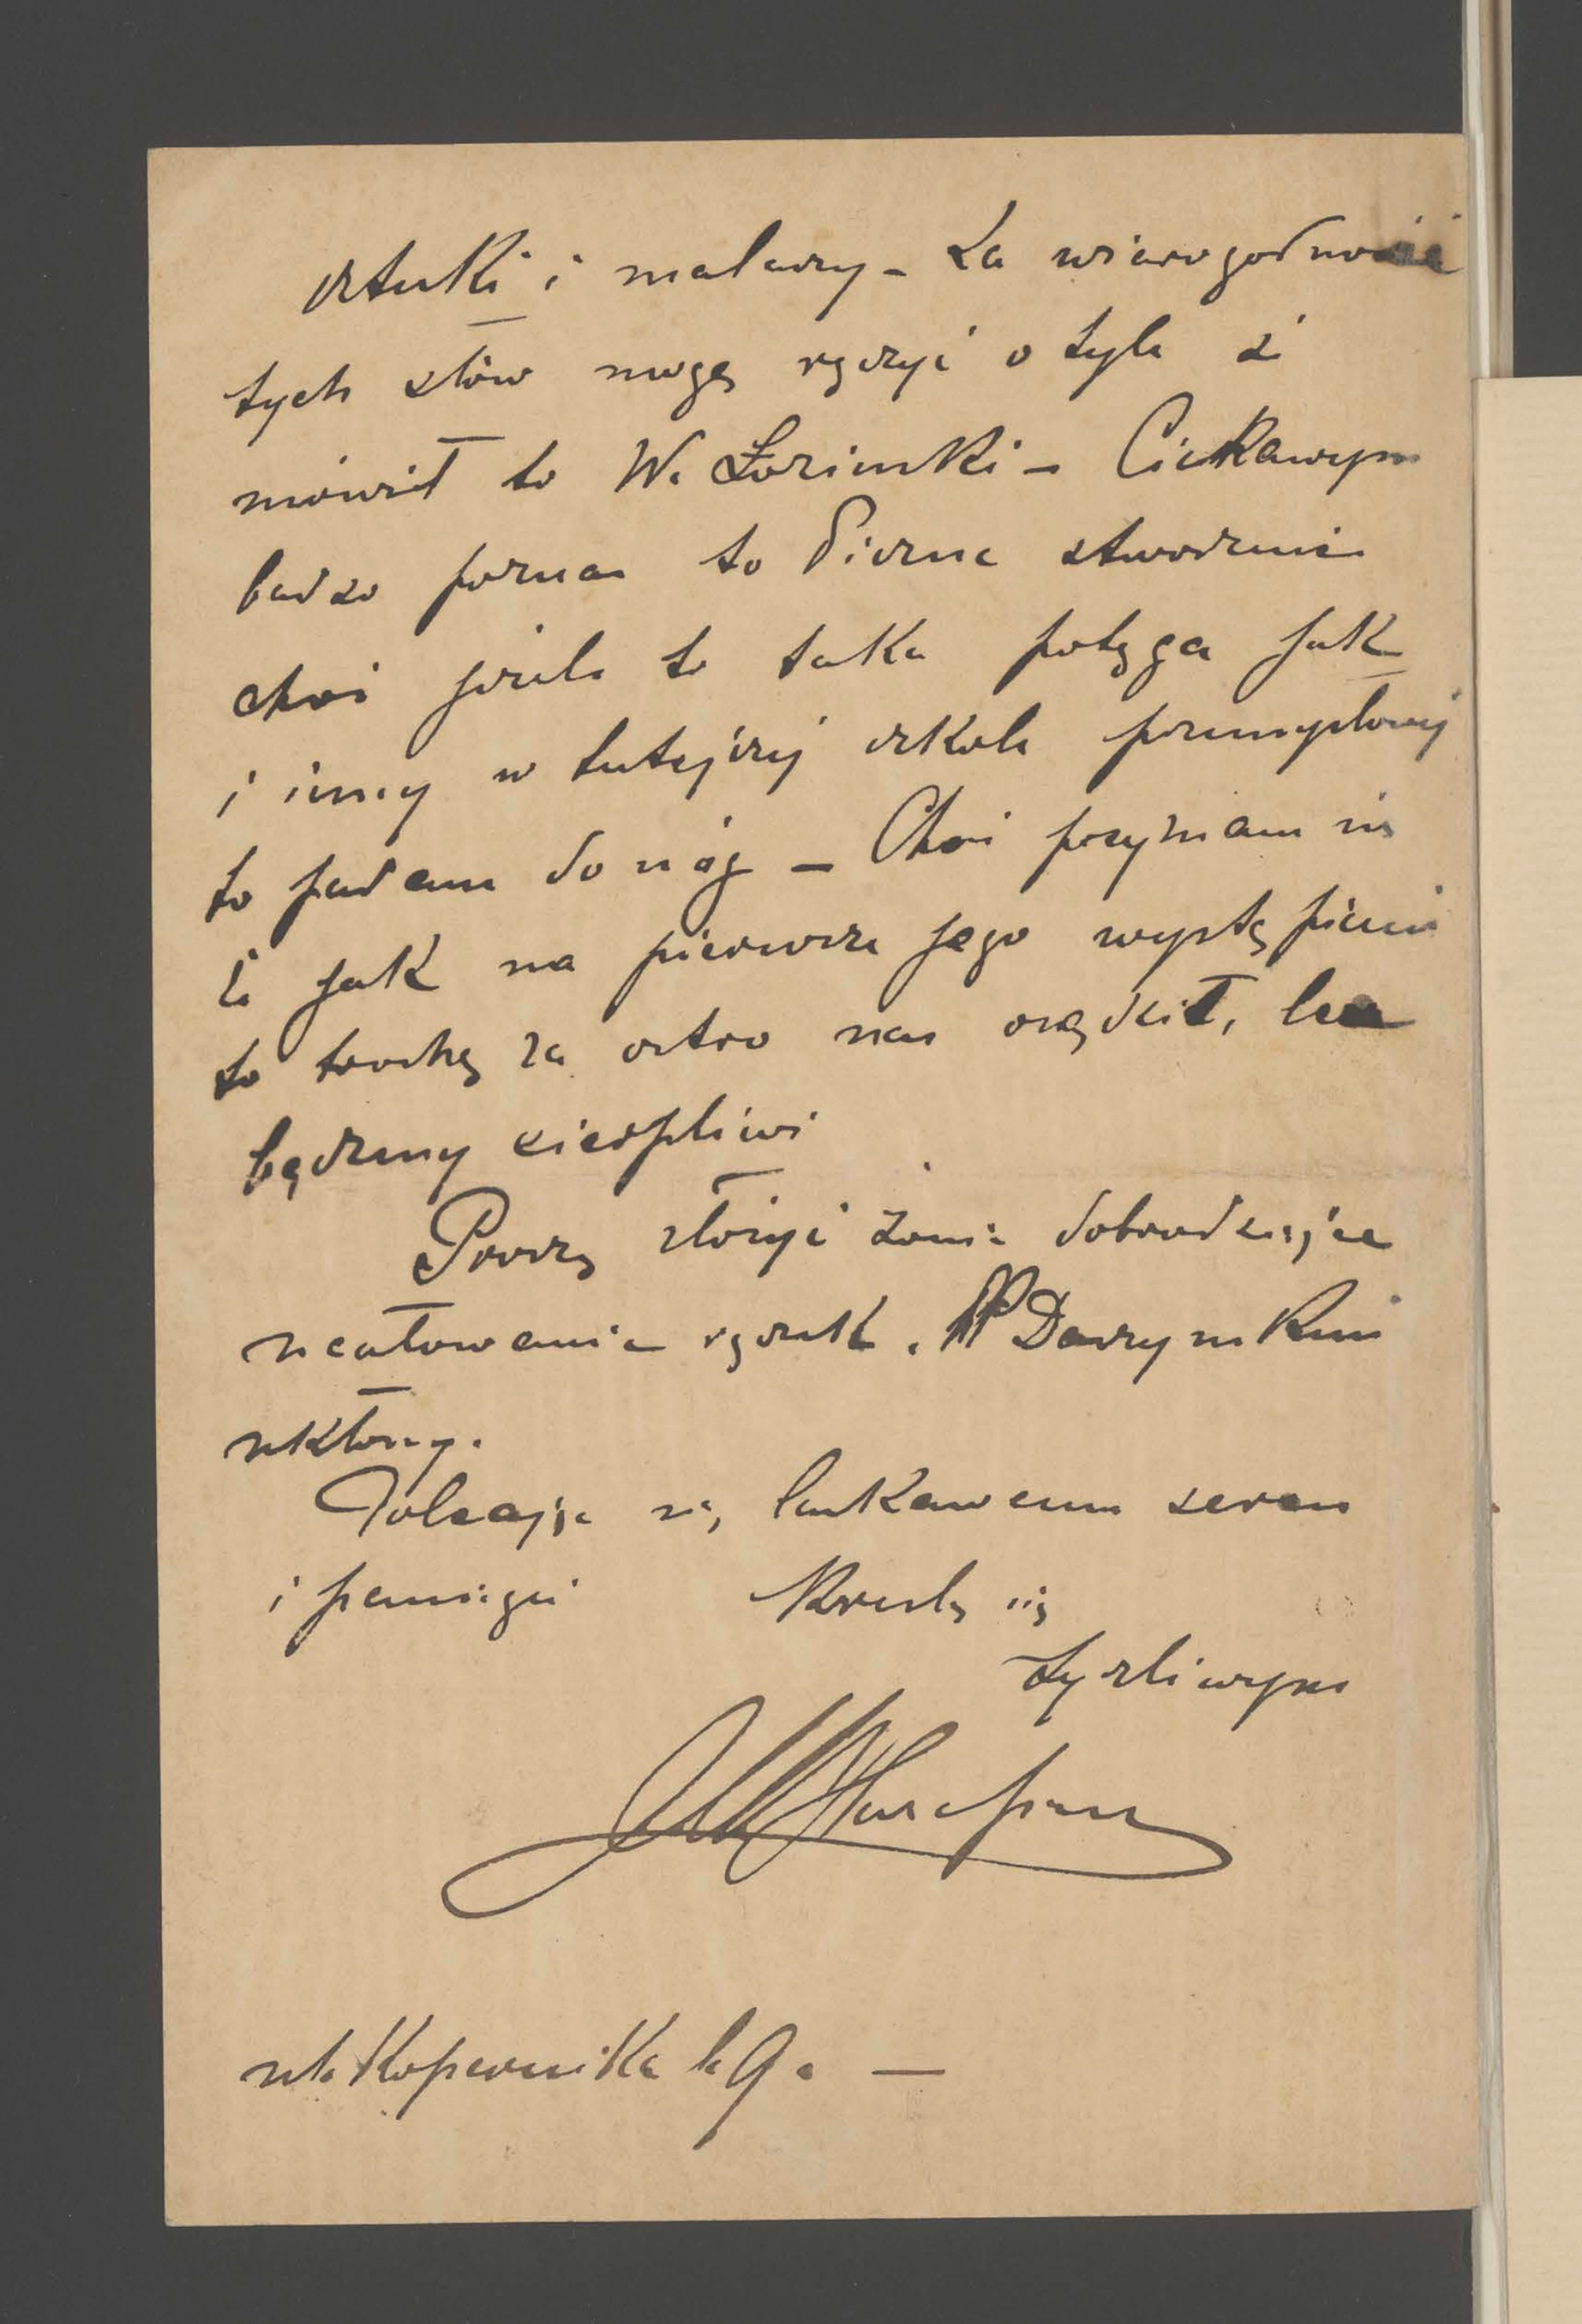 sztuki i malarzy – Za wiarogodność
tych słów mogę ręczyć o tyle ż
mówił to W. Łoziński – Ciekawym
bardzo poznać to Boże stworzenie
choć jeżeli to taka potęga jak
i inny w tutejszej szkole przemysłowej
to padam do nóg – Choć przyznam się
że jak na pierwsze jego wystąpienie
to trochę za ostro nas osądził, lecz
będziemy cierpliwi
Proszę złożyć żonie dobrodzieja
ucałowanie rączek. PP
ukłony.
Polecając się łaskawemu sercu
i pamięci Kreślę się
życzliwym
ul. Kopernika l. 9. —